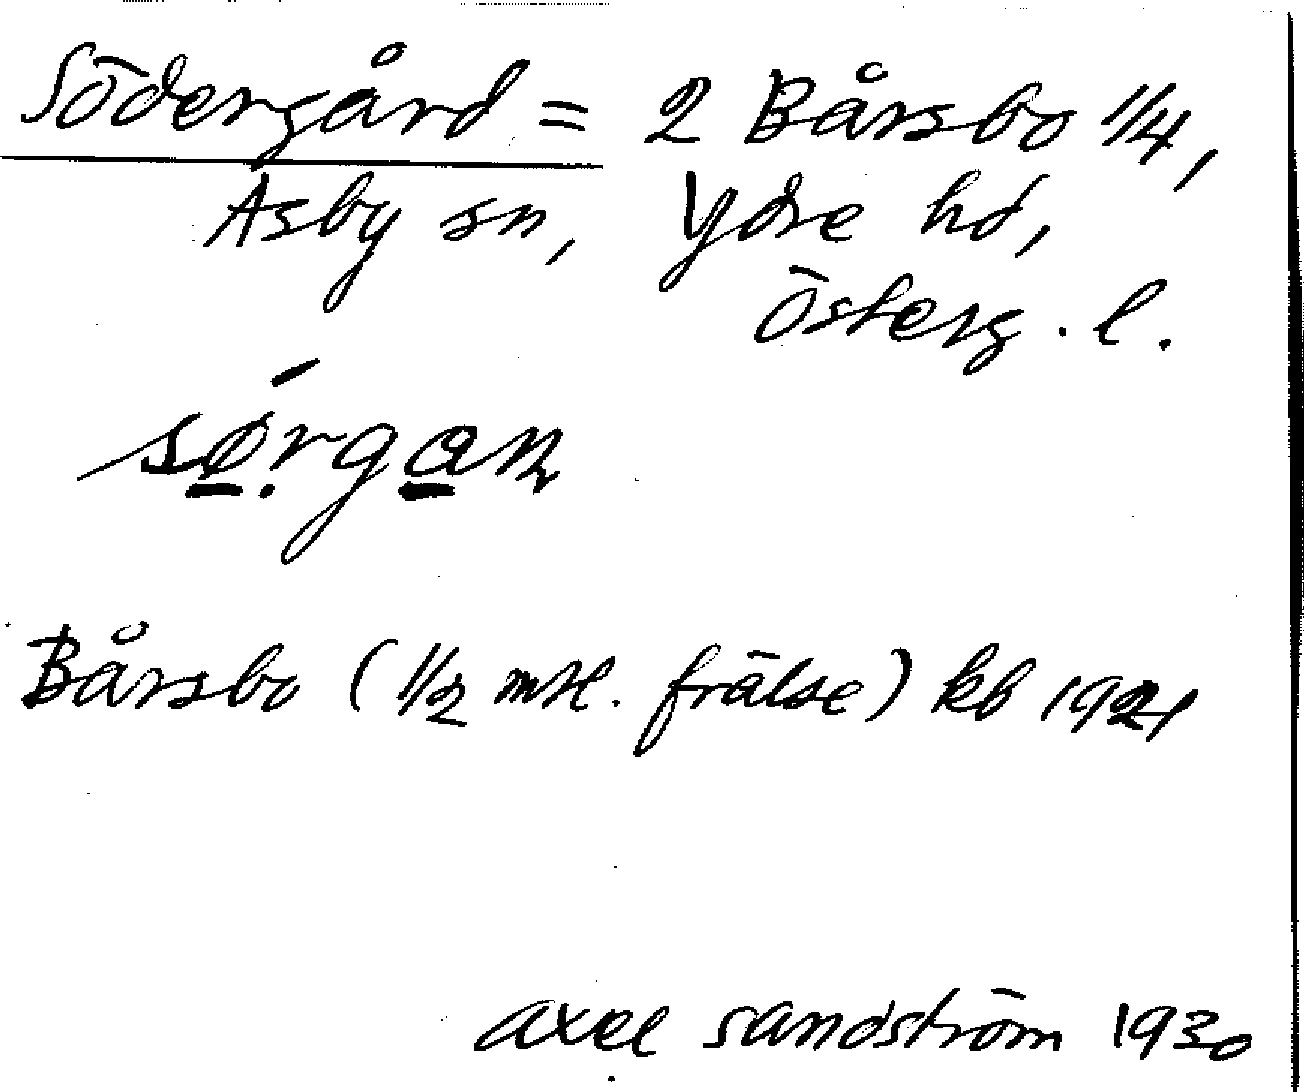 Södergård = 2 Bårsbo 1/4,
Asby sn, Ydre hd,
Österg. l.
sǿ̱rga̱n
Bårsbo (1/2 mtl. frälse) kb 1921
axel sandström 1930